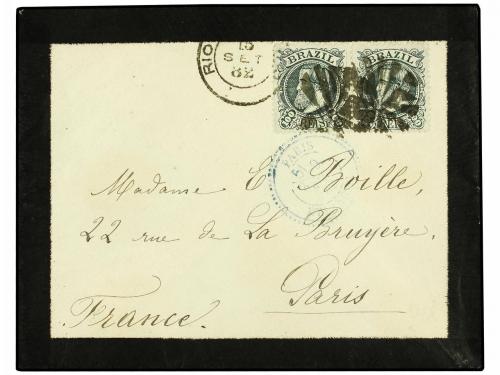 RIO
15
SET
82
BRAZIL BRAZIL
REIS
PARIS
Madame E. Boille,
22 rue de La Bruyère.
Paris
France.